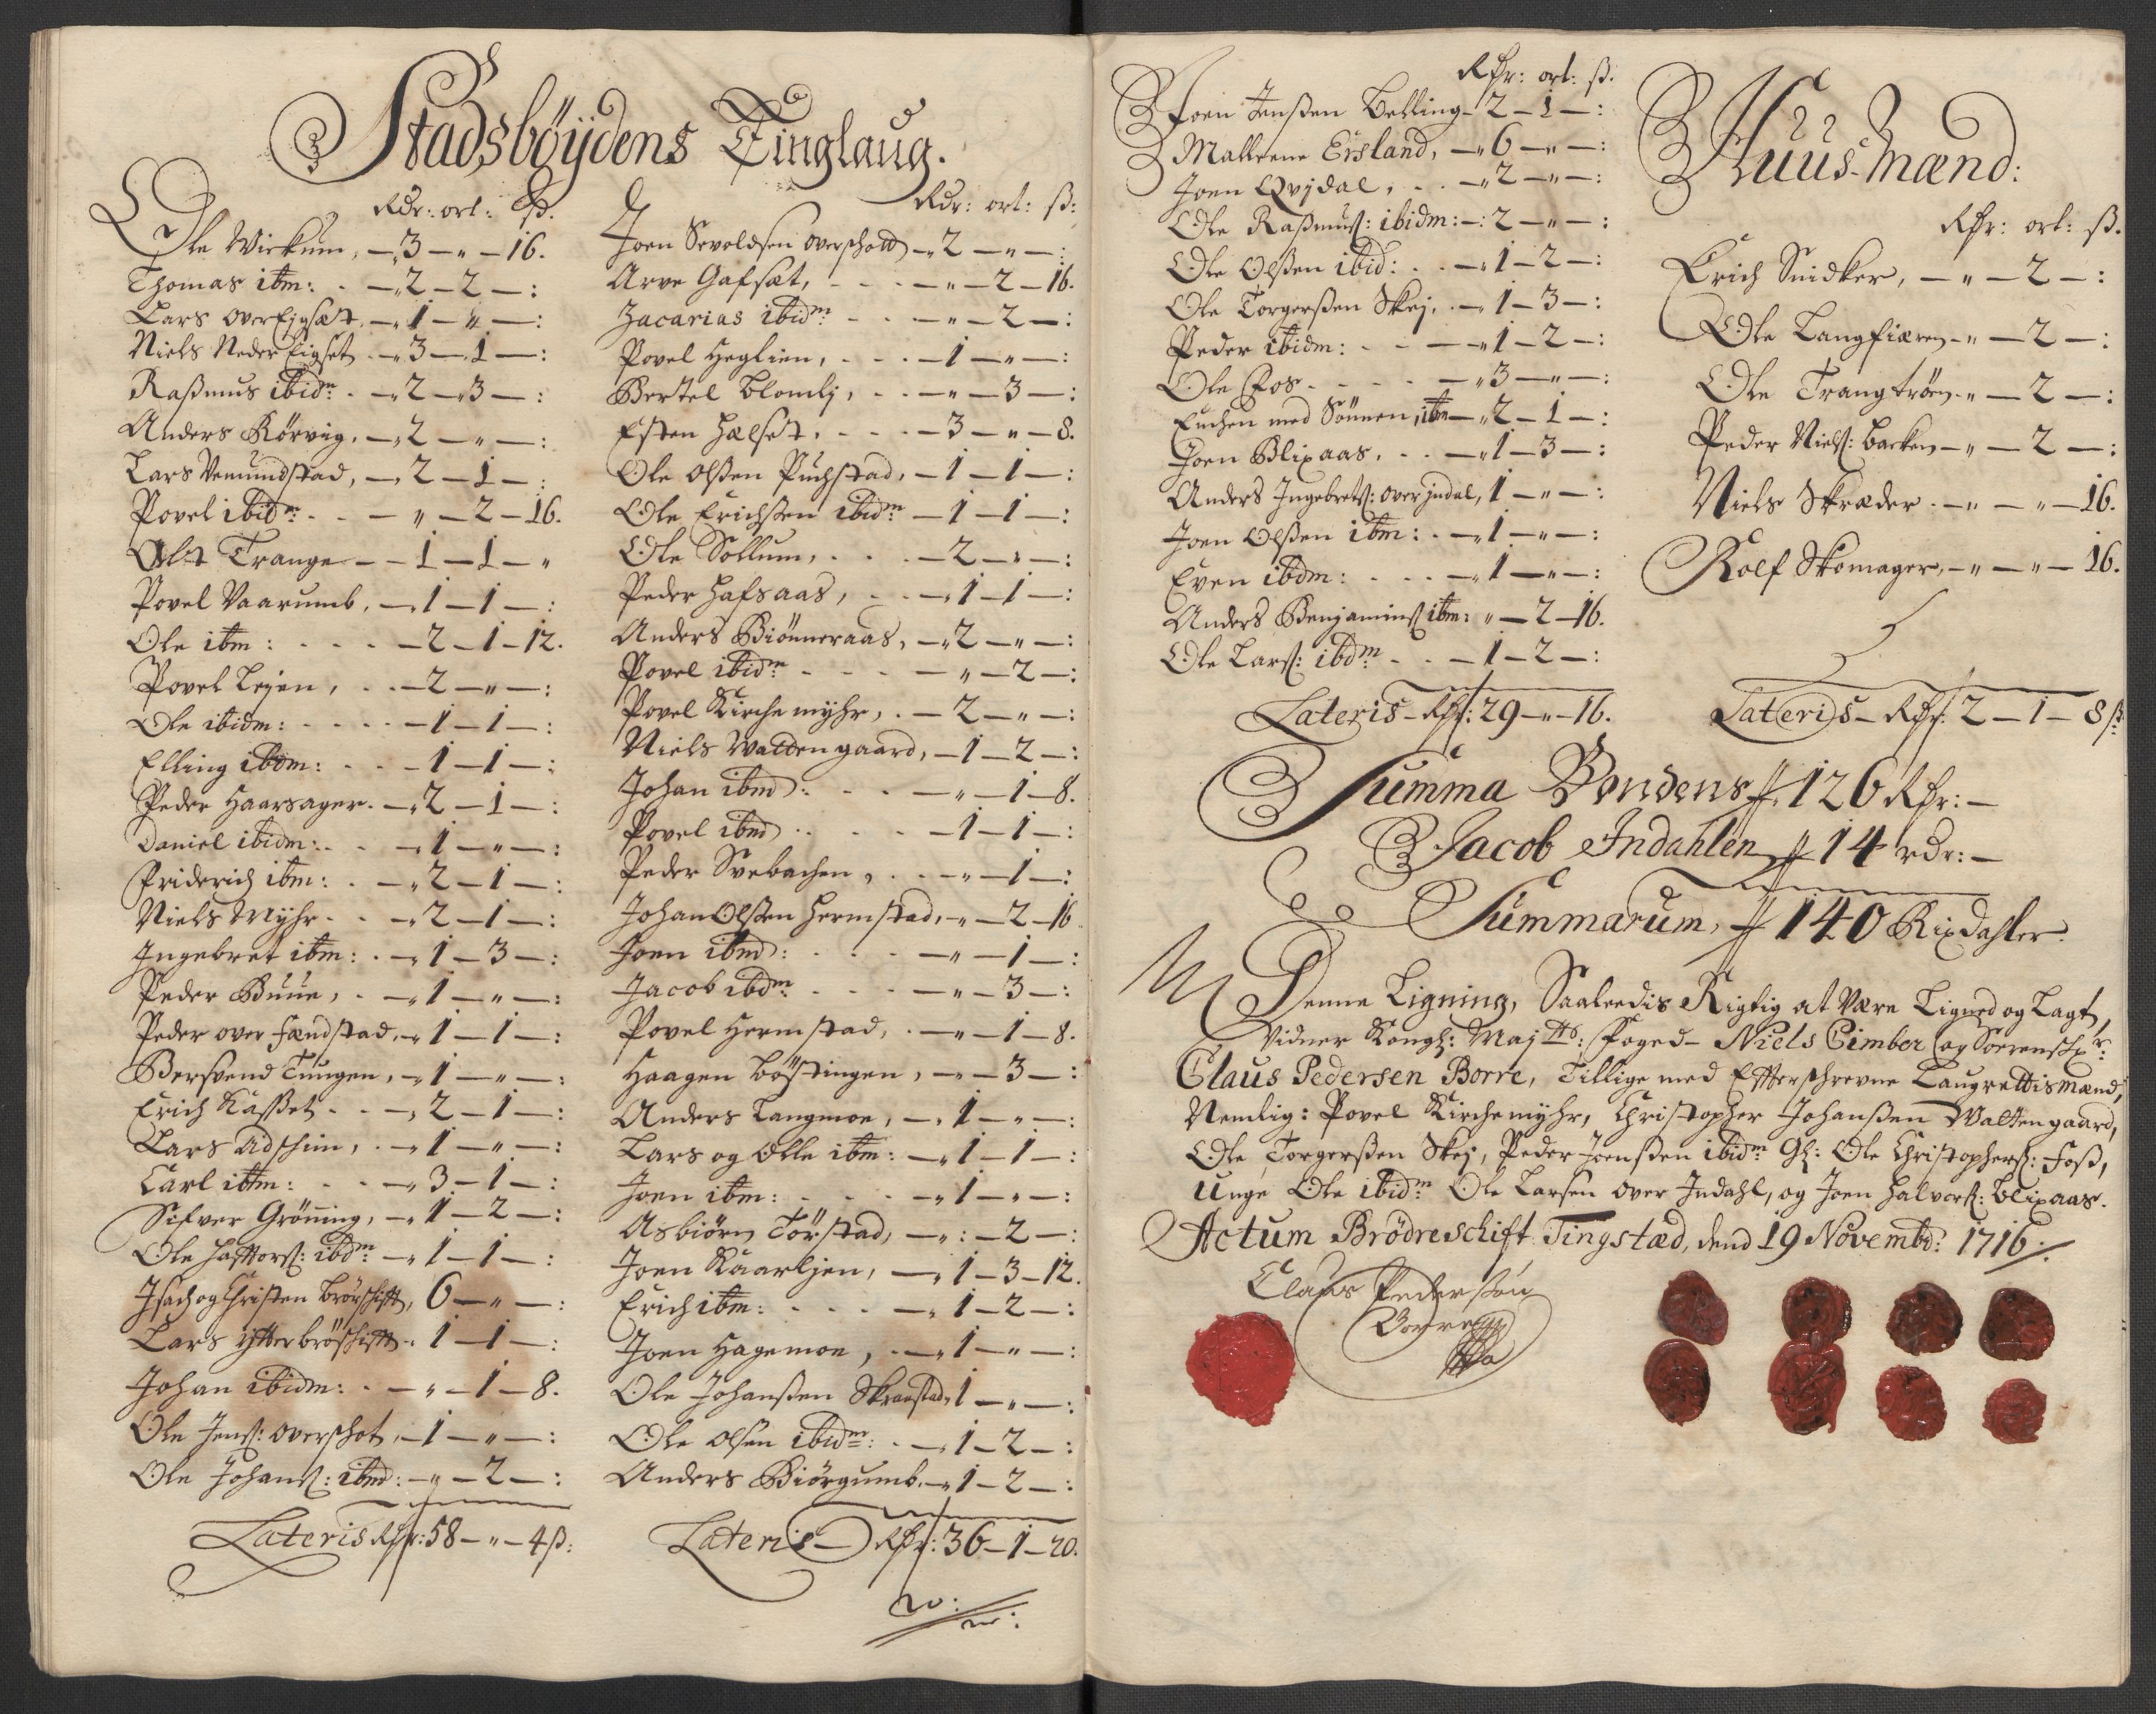 Stadsbøÿdens Tinglaug.
Rdr: ort: ß.
Ole Wirkum, — 3 — " — 16.
Thomas itm: . — 2 — 2 — :
Lars over Eigset, — 1 — " — :
Niels Neder Eigset . — 3 — 1 — :
Raßmus ibidm . — 2 — 3 — :
Anders Rørvig, — 2 — " — :
Lars Vemundstad, — 2 — 1 — :
Povel ibidm . . — " — 2 — 16.
Olle Trange — — 1 — 1 — "
Povel Vaarumb, — 1 — 1 — :
Ole itm: . . . — 2 — 1 — 12.
Povel Leyen, . . — 2 — " — :
Ole ibidm: . . . . — 1 — 1 — :
Elling ibdm: . . — 1 — 1 — :
Peder Haarsager. — 2 — 1 — :
Daniel ibidm: . . — 1 — " — :
Friderich itm: . — 2 — 1 — :
Niels Myhr . . — 2 — 1 — :
Ingebret itm: . — 1 — 3 — :
Peder Buue, . — 1 — " — :
Peder over Fændstad, — 1 — 1 — :
Bersvend Tungen, — 1 — " — :
Erich Kaßet . . — 2 — 1 — :
Lars Adshim, . — 1 — " — :
Carl ittm: . . — 3 — 1 — :
Sifver Grønning, — 1 — 2 — :
Ole Hafftorß: ibdm — 1 — 1 — :
Isach og Christen Brøschift, 6 — " — :
Lars ytterbrøschift . 1 — 1 — :
Johan ibidm: . — " — 1 — 8.
Ole Jenß: overschot, — 1 — " — :
Ole Johanß: ibmd: — " — 2 — :
Lateris Rdr: 58 — " — 4 ß:
Rdr: ort: ß:
Joen Sevoldsen overskott — 2 — " — :
Arve Gafsæt, . . . — " — 2 — 16.
Zacarias ibidm . . — " — 2 — :
Povel Heglien, . . . — 1 — " — :
Bertel Blomlj, . . — " — 3 — :
Esten Hælset, . . . — 3 — " — 8.
Ole Olßen Puchstad, — 1 — 1 — :
Ole Erichßen ibidm — 1 — 1 — :
Ole Sollum, . . . — 2 — " — :
Peder Hafsaas, . . — 1 — 1 — :
Anders Biønneraas, — 2 — " — :
Povel ibidm . . . — " — 2 — :
Povel Kirche myhr, . — 2 — " — :
Niels Watten gaard, — 1 — 2 — :
Johan ibmd: . . — " — 1 — 8.
Povel ibmd . . . — 1 — 1 — :
Peder Svebachen, . . — " — 1 — :
Johan Olßen Hermstad, — " — 2 — 16
Joen ibmd: . . . — " — 1 — :
Jacob ibdm . . . — " — 3 — :
Povel Hermstad, . — " — 1 — 8.
Haagen Bøstingen, — " — 3 — :
Anders Langmoe, — 1 — " — :
Lars og Olle itm: — 1 — 1 — :
Joen itm: . . . — 1 — " — :
Asbiørn Tørstad, — " : — 2 — :
Joen Kaarljen, — 1 — 3 — 12.
Erich itm: . . . — 1 — 2 — :
Joen Hagemoe, . — 1 — " — :
Ole Johanßen Skravstad, 1 — " — :
Ole Olsen ibidm: . — 1 — 2 — :
Anders Biørgumb, — 1 — 2 — :
Lateris — Rdr: 36 — 1 — 20.
Rdr: ort: ß.
Joen Jenßen Belling — 2 — 1 — :
Malleene Eisland, — " 6 — " — :
Joen Qvjdal, . . — " 2 — " — :
Ole Raßmuß: ibidm: — : 2 — " — :
Ole Olßen ibid: . . — 1 — 2 — :
Ole Torgerßen Skej, . — 1 — 3 — :
Peder ibidm: . . — 1 — 2 — :
Ole Fos . . . . — " 3 — " — :
Enchen med Sønnen, itm — 2 — 1 — :
Joen Blixaas, . . — 1 — 3 — :
Anders Ingebretß: over Indal, 1 — " — :
Joen Olßen itm: . — 1 — " — :
Even ibdm: . . . — 1 — " — :
Anders Benjaminß itm: " — 2 — 16.
Ole Larß: ibdm . . — 1 — 2 — :
Lateris — Rdr: 29 — " — 16.
Huus-Mænd:
Rdr: ort: ß.
Erich Snidker, — " — 2 — :
Ole Langfiæren — " — 2 — :
Ole Trangtrøen — " — 2 — :
Peder Nielß: backen — " — 2 — :
Niels Skræder . — " — " — 16.
Rolf Skomager, — " — " — 16.
Lateris — Rdr: 2 — 1 — 8 ß
Summa Bondens 126 Rdr: —
Jacob Indahlen 14 rdr: —
Summarum, 140 Rixdahler.
Denne Ligning, Saaleedis Rigtig at Være Ligned og Lagt,
Vidner Kongl: Maj tts: Foged — Niels Cimber og Sorenschr:
Claus Pedersen Borre, Tillige med Efterschrevne Laugrettismænd,
Nemlig: Povel Kirchemyhr, Christopher Johanßen Waltengaard,
Ole Torgerßen Skej, Peder Joenßen ibidm Gl: Ole Christopherß: Foß,
Unge Ole ibidm Ole Larsen over Indahl, og Joen Halvorß: Blixaas.
Actum Brødreschift Tingstæd, dend 19 Novembd: 1716 ./.
Claus Pederßøn
Borre